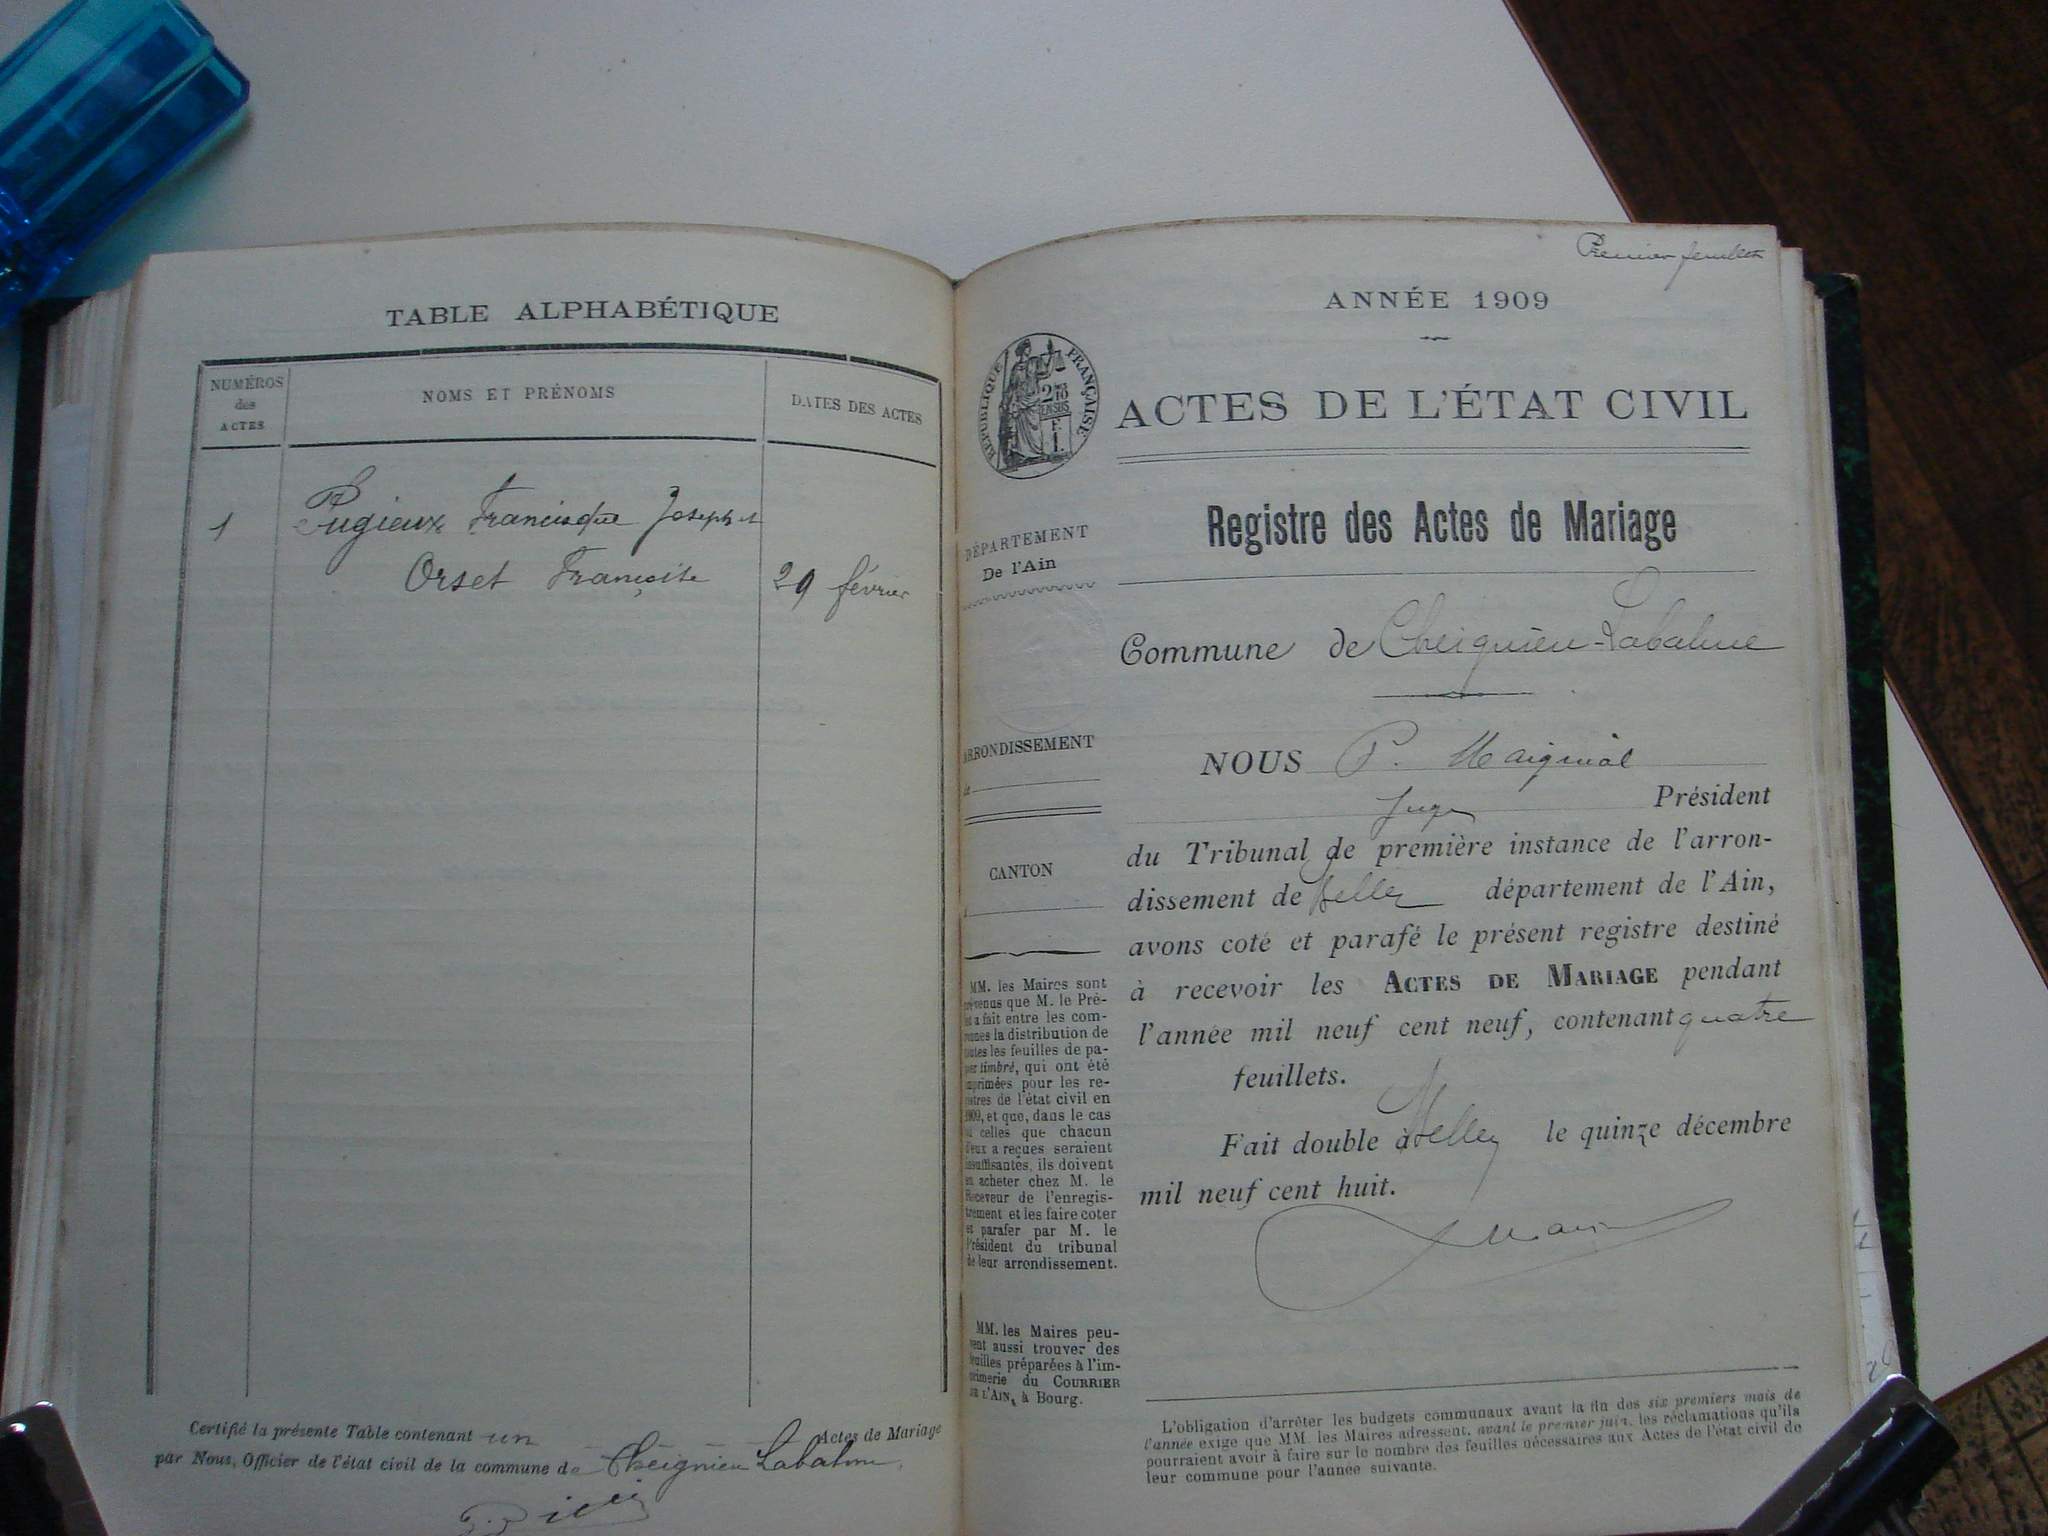 TABLE ALPHABÉTIQUE
NUMÉROS
des
ACTES
NOMS ET PRÉNOMS
DATES DES ACTES
1
Pugieux Francisque Joseph et
Orset Françoise
29 février
Certifié la présente Table contenant un Actes de Mariage
par Nous, Officier de l'état civil de la commune de Cheignieu Labalme
Premier feuillet
ANNÉE 1909
RÉPUBLIQUE FRANÇAISE
ACTES DE L'ÉTAT CIVIL
Registre des Actes de Mariage
DÉPARTEMENT
De l'Ain
Commune de Cheignieu-Labalme
ARRONDISSEMENT
CANTON
MM. les Maires sont
prévenus que M. le Pré-
fet a fait entre les com-
munes la distribution de
toutes les feuilles de pa-
pier timbré, qui ont été
imprimées pour les re-
gistres de l'état civil en
1909, et que, dans le cas
où celles que chacun
d'eux a reçues seraient
insuffisantes, ils doivent
en acheter chez M. le
Receveur de l'enregis-
trement et les faire coter
et parafer par M. le
Président du tribunal
de leur arrondissement.
MM. les Maires peu-
vent aussi trouver des
feuilles préparées à l'im-
primerie du COURRIER
DE L'AIN, à Bourg.
NOUS P. Maignial
Juge Président
du Tribunal de première instance de l'arron-
dissement de Belley département de l'Ain,
avons coté et parafé le présent registre destiné
à recevoir les ACTES DE MARIAGE pendant
l'année mil neuf cent neuf, contenant quatre
feuillets.
Fait double à Belley le quinze décembre
mil neuf cent huit.
L'obligation d'arrêter les budgets communaux avant la fin des six premiers mois de
l'année exige que MM. les Maires adressent, avant le premier juin, les réclamations qu'ils
pourraient avoir à faire sur le nombre des feuilles nécessaires aux Actes de l'état civil de
leur commune pour l'année suivante.